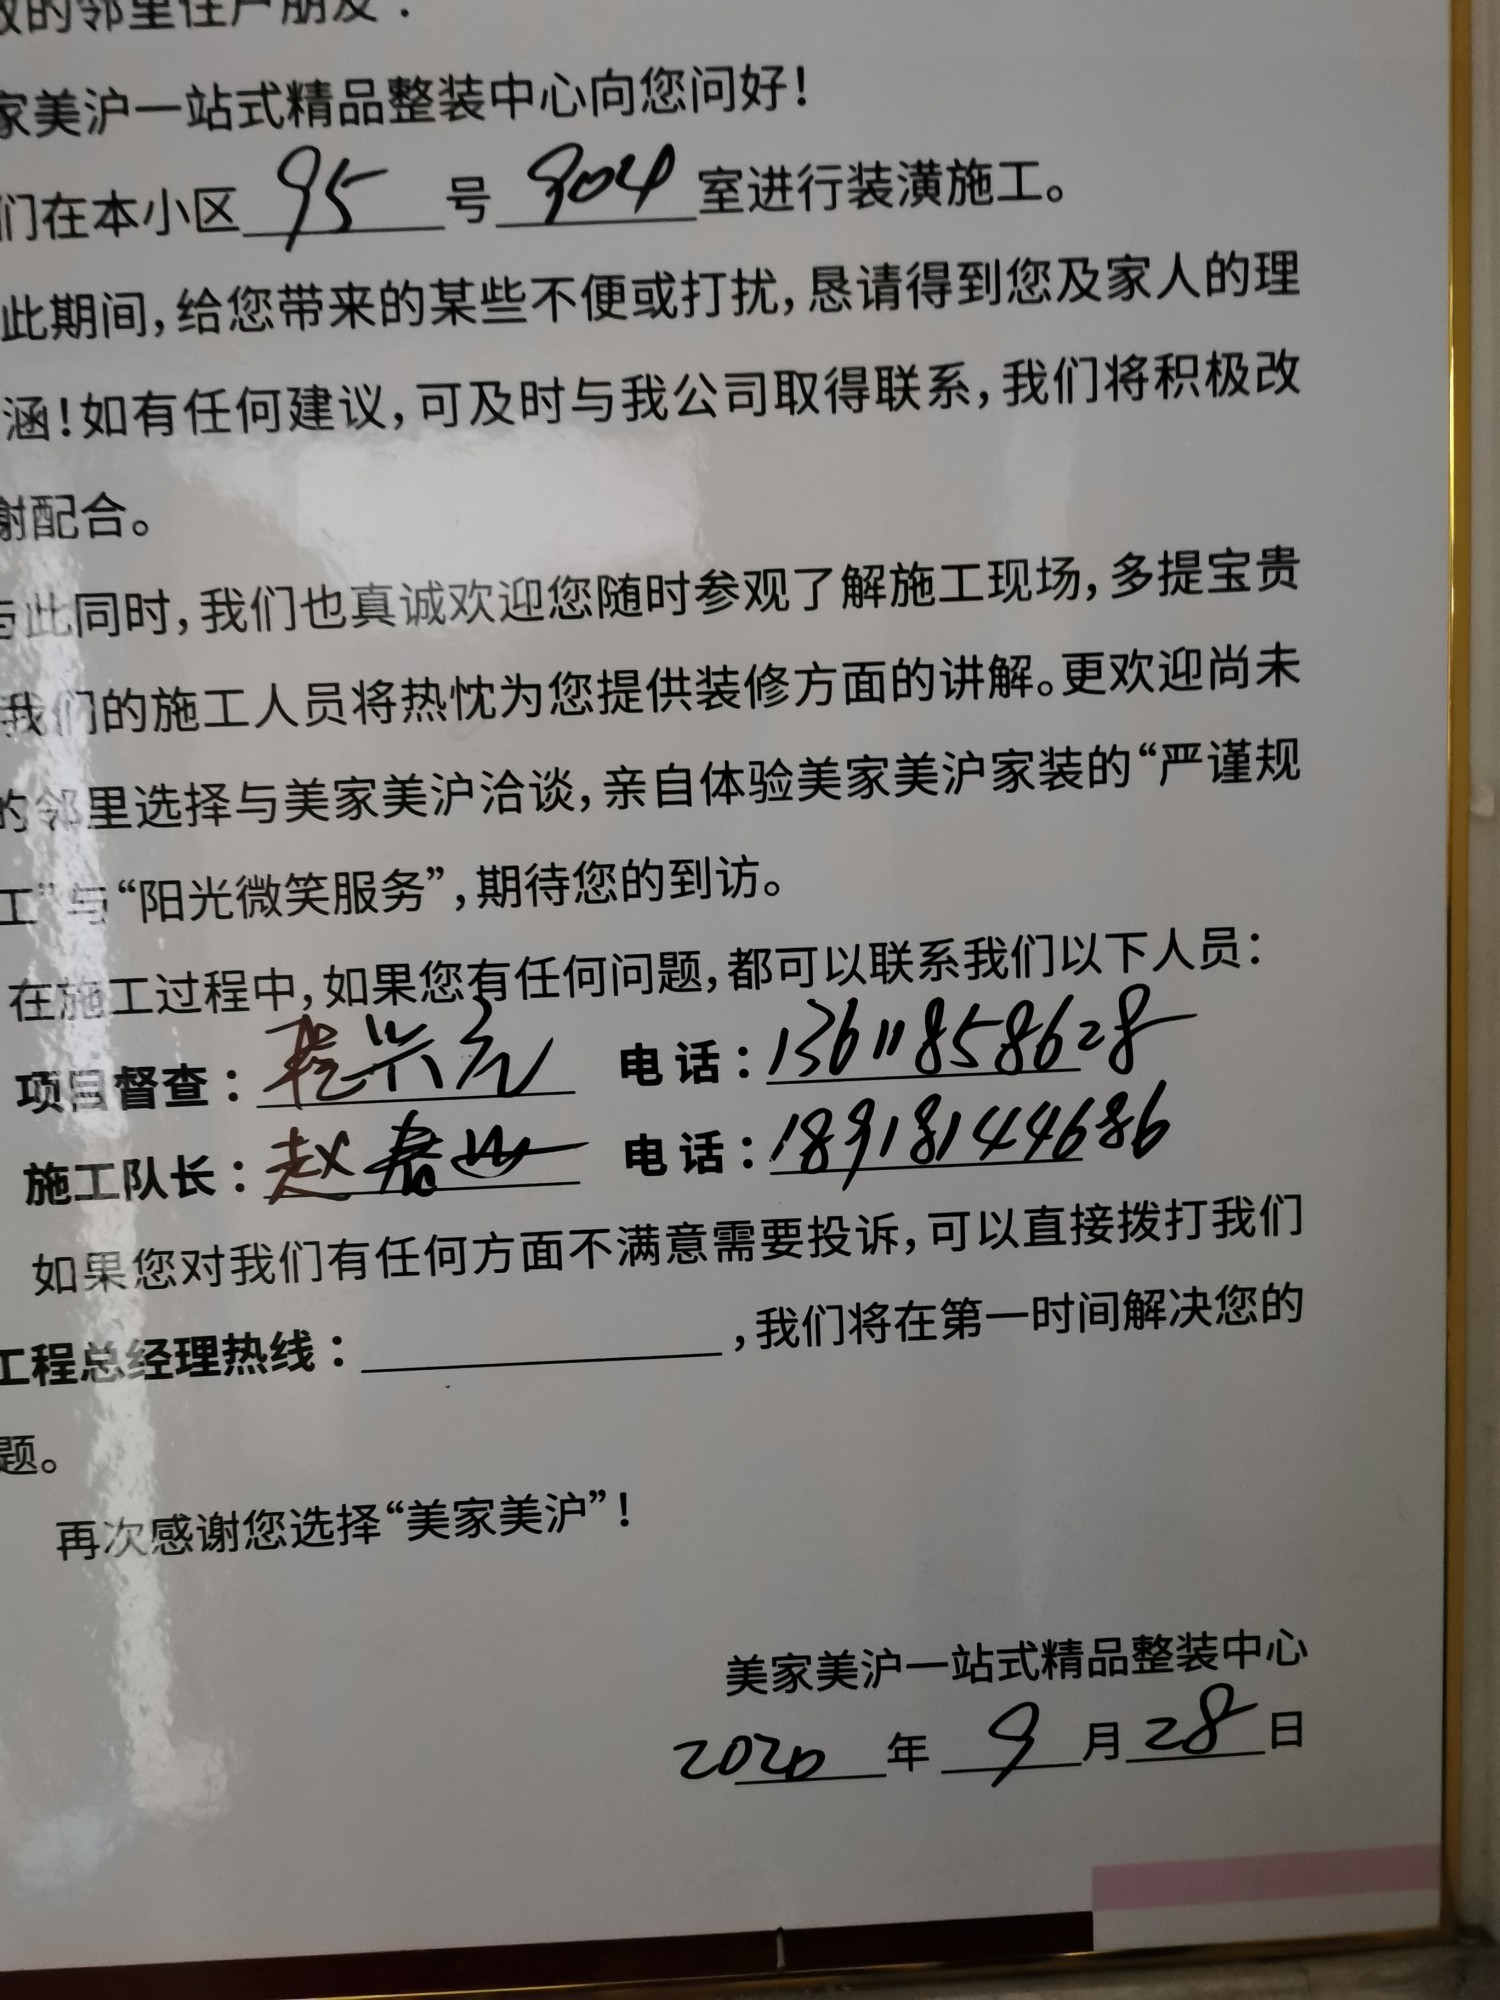 的邻里住户朋友：
家美沪一站式精品整装中心向您问好！
们在本小区95号904室进行装潢施工。
此期间，给您带来的某些不便或打扰，恳请得到您及家人的理
涵！如有任何建议，可及时与我公司取得联系，我们将积极改
谢配合。
与此同时，我们也真诚欢迎您随时参观了解施工现场，多提宝贵
我们的施工人员将热忱为您提供装修方面的讲解。更欢迎尚未
的邻里选择与美家美沪洽谈，亲自体验美家美沪家装的“严谨规
工”与“阳光微笑服务”，期待您的到访。
在施工过程中，如果您有任何问题，都可以联系我们以下人员：
项目督查：程兴元 电话：13611858628
施工队长：赵 电话：18918144686
如果您对我们有任何方面不满意需要投诉，可以直接拨打我们
工程总经理热线：，我们将在第一时间解决您的
题。
再次感谢您选择“美家美沪”！
美家美沪一站式精品整装中心
2020年9月28日